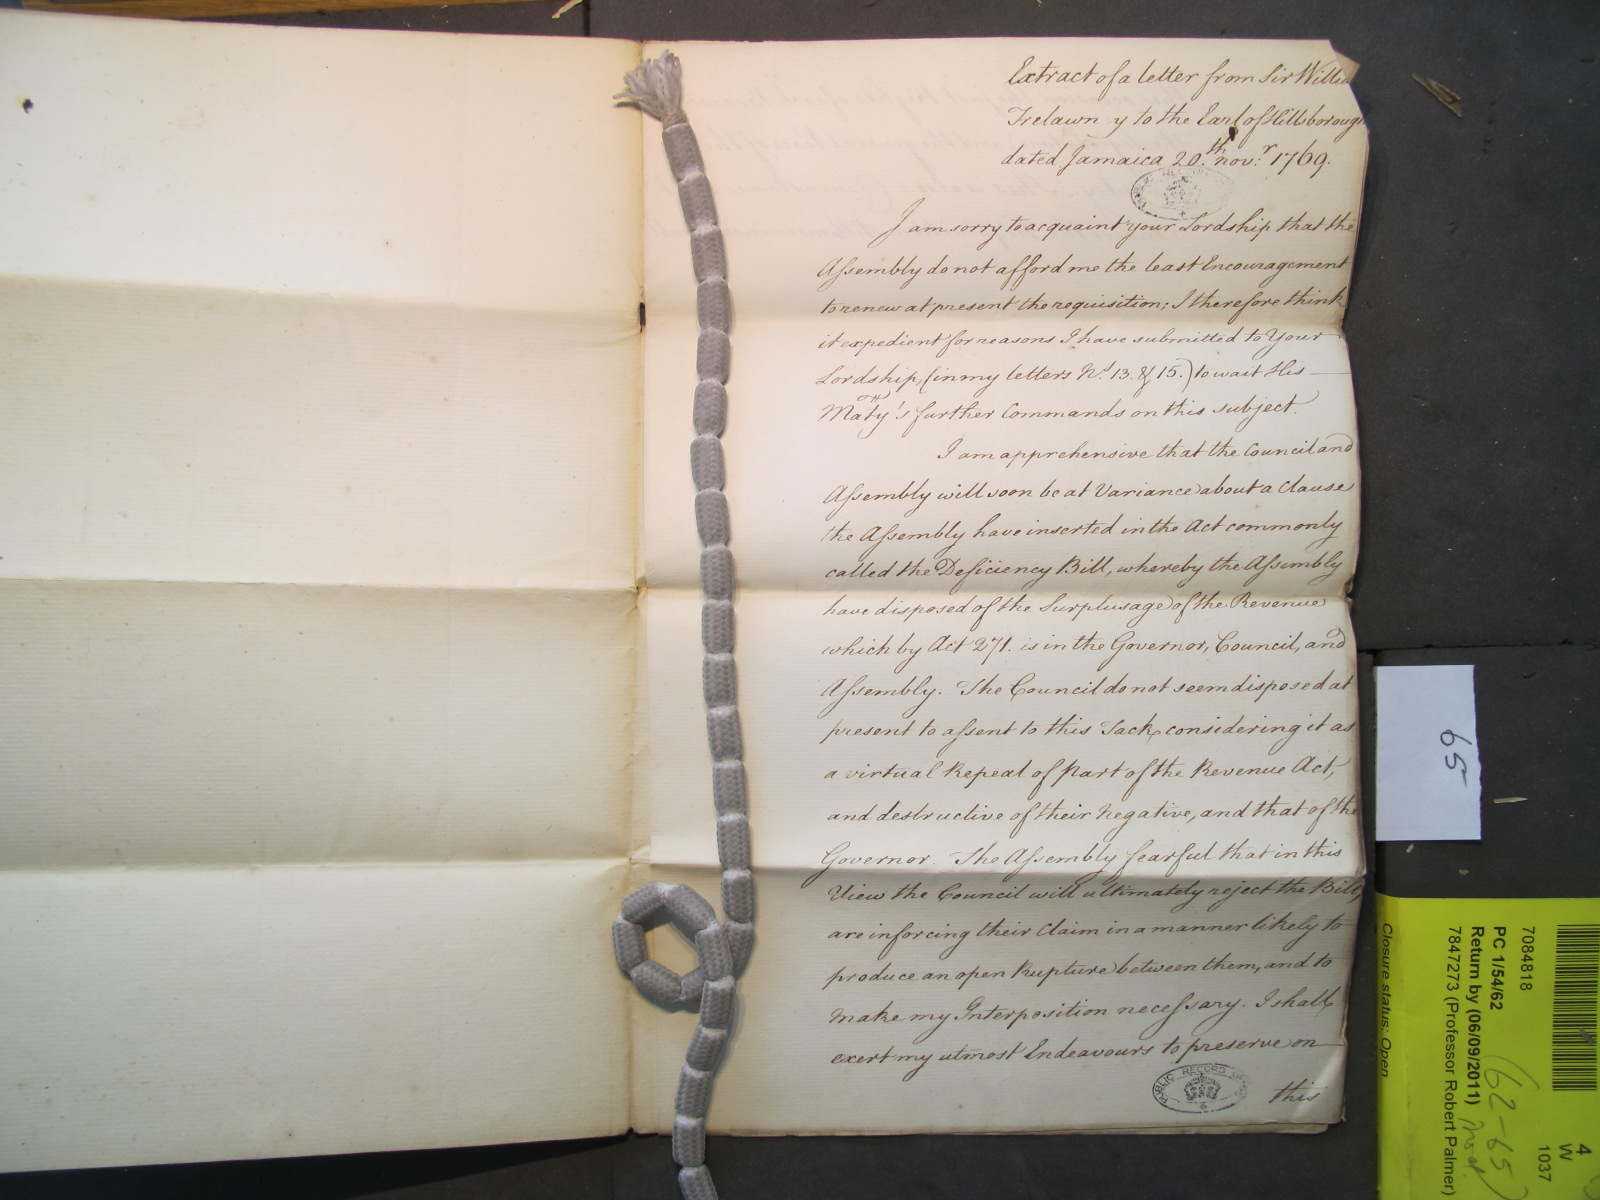 Extract of a letter from Sir Willia
Trelawny to the Earl of Hillsboroug
dated Jamaica 20.th nov:r 1769.
PUBLIC RECORD OF
I am sorry to acquaint your Lordship that the
Assembly do not afford me the least Encouragement
to renew at present the requisition; I therefore think
it expedient for reasons I have submitted to Your
Lordship, (in my letters No. 13. & 15.) to wait His
Maty's further Commands on this subject.
I am apprehensive that the Council and
Assembly will soon be at Variance about a Clause
the Assembly have inserted in the Act commonly
called the Deficiency Bill, whereby the Assembly
have disposed of the Surplusage of the Revenue
which by Act 271. is in the Governor, Council, and
Assembly. The Council do not seem disposed at
present to assent to this Tack, considering it as
a virtual Repeal of part of the Revenue Act,
and destructive of their Negative, and that of the
Governor. The Assembly fearful that in this
View the Council will ultimately reject the Bill,
are inforcing their Claim in a manner likely to
produce an open Rupture between them, and to
make my Interposition necessary. I shall
exert my utmost Endeavours to preserve on
this
PUBLIC RECORD OFFICE
65
7084818
PC 1/54/62
Return by (06/09/2011)
7847273 (Professor Robert Palmer)
Closure status: Open
4
W
1037
62-65